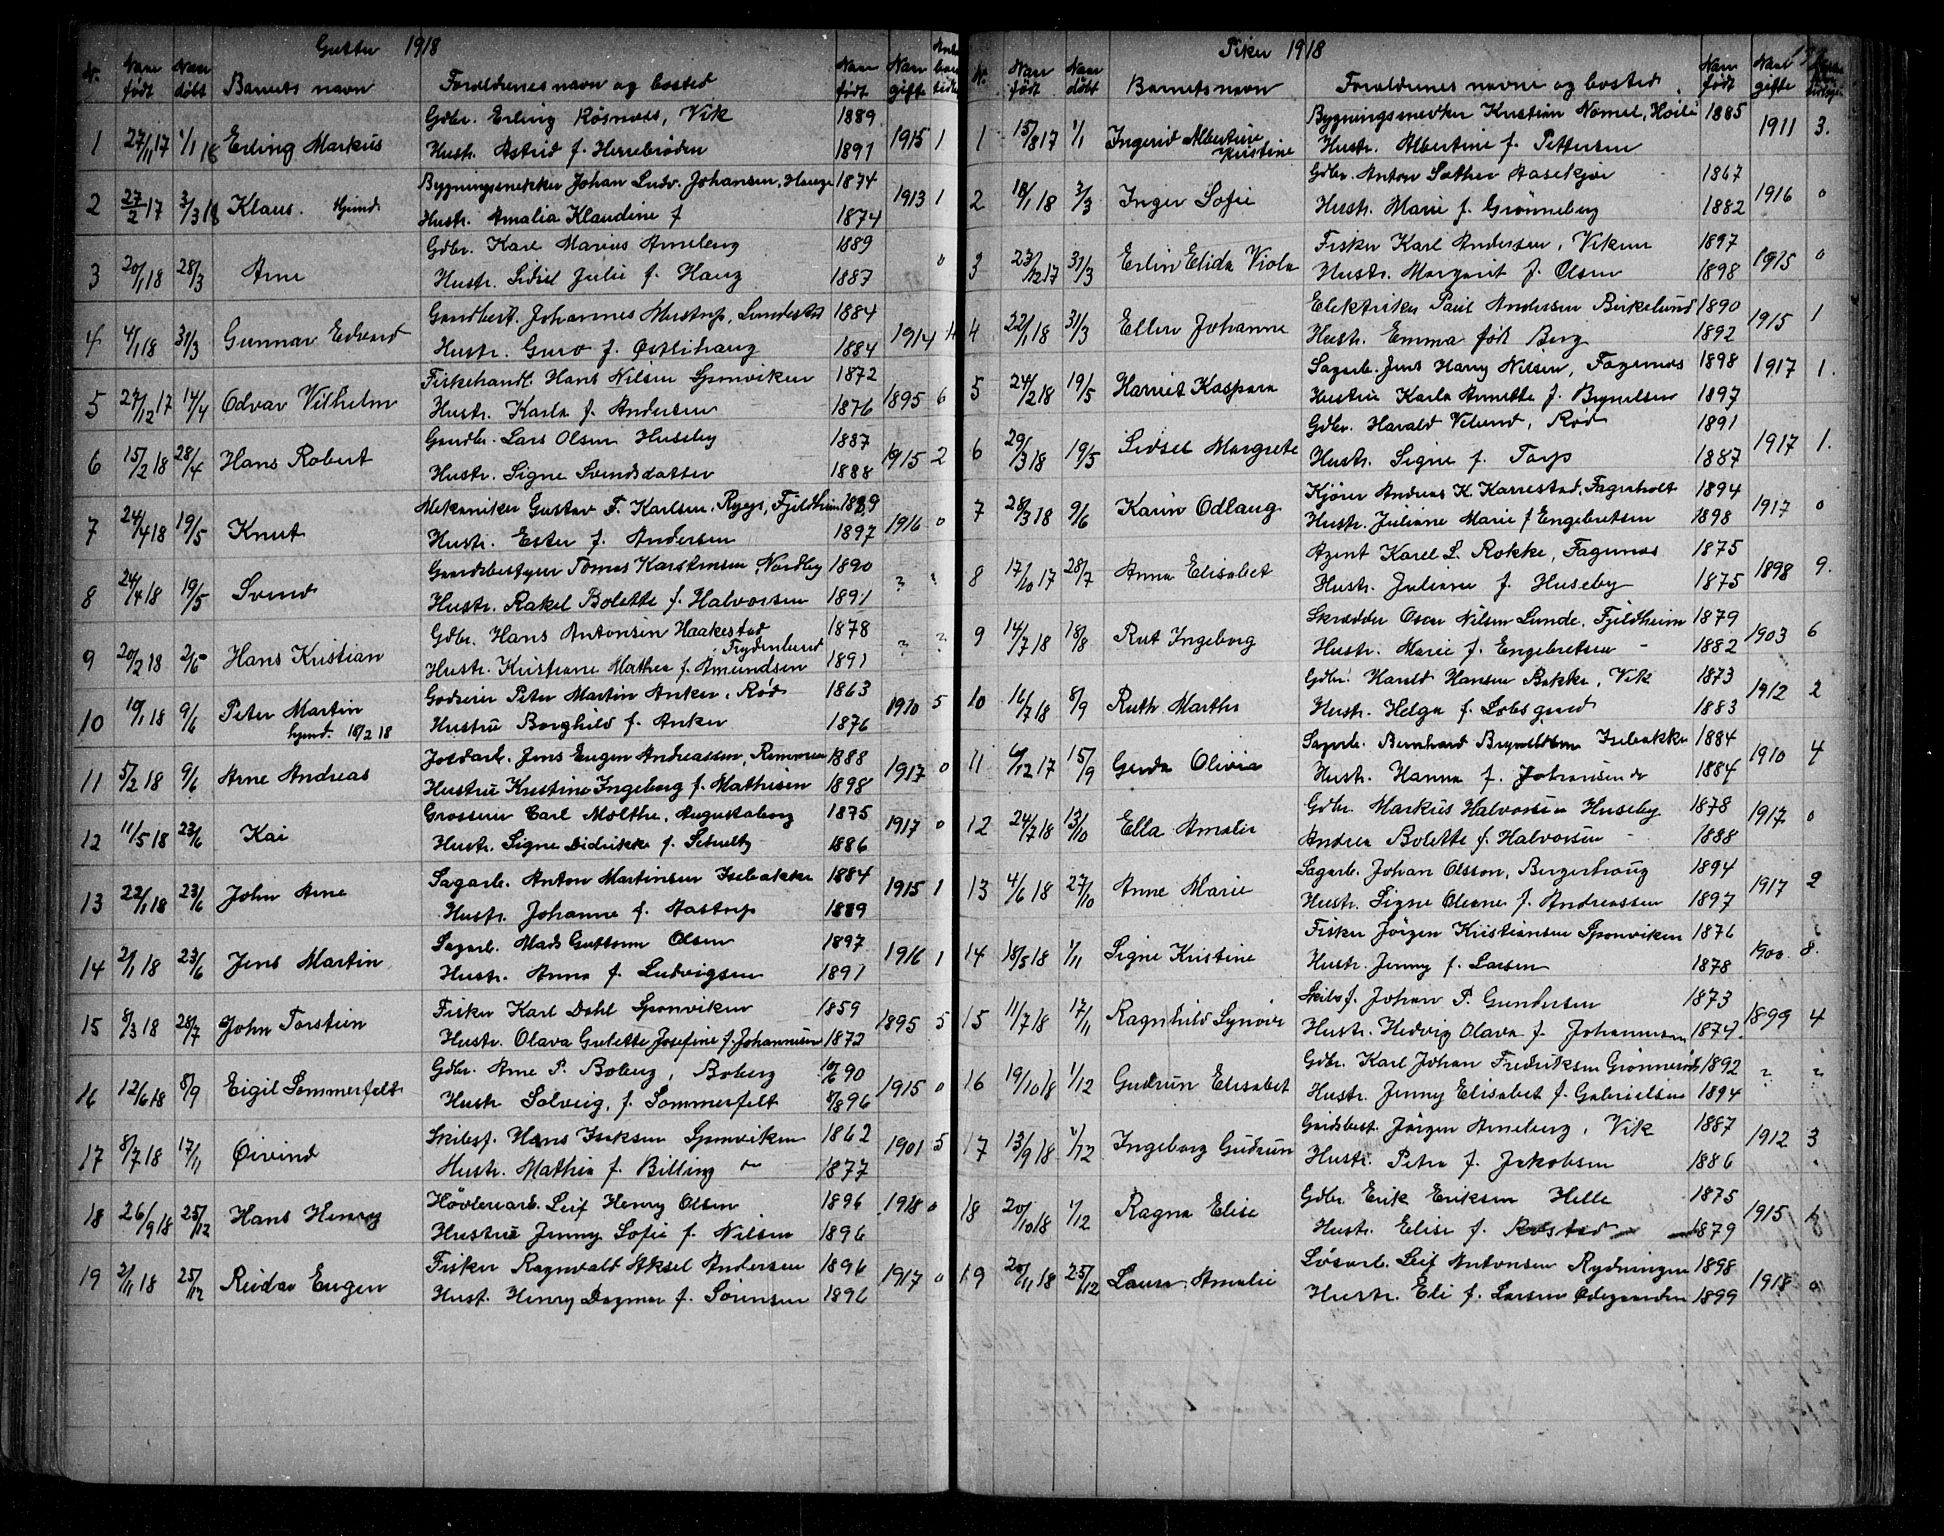 Gutter 1918
Nr. Naar født Naar døbt Barnets navn Foreldrenes navn og bosted Naar født Naar gifte
1 27/11 17 1/1 18 Erling Markus Gdbr. Erling Røsnæs, Vik 1889 1915 1
Hustr. Astrid f. Herrebrøden 1891
2 27/2 17 3/3 18 Klaus. Hjemd. Bygningssnekker Johan Ludv. Johansen, Hauge 1874 1913 1
Hustr. Amalia Klaudine f 1874
3 20/1 18 28/3 Arne Gdbr. Karl Marius Arneberg 1889 0
Hustr. Sidsel Julie f. Haug 1887
4 4/1 18 31/3 Gunnar Edvard Gaardbest. Johannes Mustrup, Sundestad 1884 1914 4
Hustr. Guro f. Østlihaug 1884
5 27/12 17 14/4 Odvar Vilhelm Fiskehandl. Hans Nilsen Sponviken 1872 1895 6
Hustr. Karla f. Andersen 1876
6 15/2 18 28/4 Hans Robert Gaardbr. Lars Olsen Huseby 1887 1915 2
Hustr. Signe Svendsdatter 1888
7 24/4 18 19/5 Knut Mekaniker Gustav F. Karlsen, Rygg, Fjeldheim 1889 1916 0
Hustr. Ester f. Andersen 1897
8 24/4 18 19/5 Svend Gaardsbestyrer Tomas Karstensen, Nordby 1890 ? ?
Hustr. Rakel Bolette f. Halvorsen 1891
9 20/2 18 2/6 Hans Kristian Gdbr. Hans Antonsen Haakestad 1878 ? ?
Frydenlund
Hustr. Kristiane Mathea f. Amundsen 1891
10 19/1 18 9/6 Peter Martin Godseier Peter Martin Anker, Rød 1863 1910 5
hjemd. 18/2 18 Hustru Borghild f. Anker 1876
11 5/2 18 9/6 Arne Andreas Jordarb. Jens Eugen Andreassen, Remmen 1888 1917 0
Hustru Kristine Ingeborg f. Mathisen 1898
12 11/5 18 23/6 Kai Grosserer Carl Molthe, Augustaborg 1875 1917 0
Hustr. Signe Didrikke f. Schultz 1886
13 22/1 18 23/6 John Arne Sagarb. Anton Martinsen Isebakke 1884 1915 1
Hustr. Johanne f. Aastorp 1889
14 2/1 18 23/6 Jens Martin Sagarb. Mads Guttorm Olsen 1897 1916 1
Hustr. Anna f. Ludvigsen 1891
15 8/3 18 28/7 John Torstein Fisker Karl Dahl Sponviken 1859 1895 5
Hustr. Olava Gulette Josefine f. Johannesen 1872
16 12/6 18 8/9 Eigil Sommerfelt Gdbr. Arne P. Boberg, Boberg 10/6 90 1915 0
Hustr Solveig, f. Sommerfelt 8/8 96
17 8/7 18 17/11 Øivind Skibsf. Hans Isaksen Sponviken 1862 1901 5
Hustr. Mathea f. Billing 1877
18 26/9 18 25/12 Hans Henry Høvleriarb. Leif Henry Olsen 1896 1918 0
Hustru Jenny Sofie f. Nilsen 1896
19 2/11 18 25/12 Reidar Eugen Fisker Ragnvald Aksel Andersen 1896 1917 0
Hust. Henry Dagmar f. Sørensen 1896
Piker 1918
Nr. Naar født Naar døbt Barnets navn Foreldrenes navne og bosted Naar født Naar gifte
1 15/8 17 1/1 Ingerid Albertine Kristine Bygningssnedker Kristian Nomel, Høili 1885 1911 3.
Hustr. Albertine f. Pettersen
2 18/1 18 3/3 Inger Sofie Gdbr. Anton Sæther Aasekjær 1867 1916 0
Hustr. Marie f. Grønneberg 1882
3 23/12 17 31/3 Erlin Elida Viola Fisker Karl Andersen, Viken 1897 1915 0
Hustr. Margarit f. Olsen 1898
4 22/1 18 31/3 Ellen Johanne Elektriker Paul Andersen Birkelund 1890 1915 1
Hustr. Emma født Berg 1892
5 24/2 18 19/5 Harriet Kaspara Sagarb. Jens Harry Nilsen, Fagernæs 1898 1917 1.
Hustru Karla Annette f. Brynelsen 1897
6 29/3 18 19/5 Sidsel Margrete Gdbr. Harald Velund, Rød 1891 1917 1.
Hustr. Signe f. Torp 1887
7 28/3 18 9/6 Karin Odlaug Kjører Andreas K. Karrestad, Fagerholt 1894 1917 0
Hustr. Juliane Marie f Engebretsen 1898
8 17/10 17 28/7 Anna Elisabet Agent Karel L. Rokke, Fagernæs 1875 1898 9.
Hustr. Juliane f. Huseby 1875
9 14/7 18 18/8 Rut Ingeborg Skrædder Oscar Nilsen Lunde, Fjeldheim 1879 1903 6
Hustr. Marie f. Engebretsen - 1882
10 16/7 18 8/9 Ruth Martha Gdbr. Harald Hansen Bakke, Vik 1873 1912 2
Hustr. Helga f. Lobsgaard 1883
11 6/12 17 15/9 Gerda Olivia Sagarb. Bernhard Brynildsen Isebakke 1884 1910 4
Hustr. Hanna f. Johansen do 1884
12 24/7 18 13/10 Ella Amalie Gdbr. Markus Halvorsen Huseby 1878 1917 0
Andrea Bolette f. Halvorsen - 1888
13 4/6 18 27/10 Anne Marie Sagarb. Johan Olsson, Bergerhaug 1894 1917 2
Hustr. Signe Oleane f. Andreassen 1897
14 18/5 18 1/11 Signe Kristine Fisker Jørgen Kristiansen Sponviken 1876 1900. 8.
Hustr. Jenny f. Larsen 1878
15 11/7 18 17/11 Ragnhild Synøve Skibsf. Johan P. Gundersen 1873 1899 4
Hustr. Hedvig Olava f. Johannesen 1879.
16 19/10 18 1/12 Gudrun Elisabet Gdbr. Karl Johan Fredriksen Grønnerød 1892 ? ?
Hustr. Jenny Elisabet f. Gabrielsen 1894
17 13/9 18 1/12 Ingeborg Gudrun Gaardsbest. Jørgen Arneberg, Vik 1887 1912 3
Hustr. Petra f. Jakobsen 1886
18 20/10 18 1/12 Ragna Elise Gdbr. Erik Eriksen Helle 1875 1915 1
Hustr. Elise f. Rolstad 1879
19 20/11 18 25/12 Laura Amalie Løsarb. Leif Antonsen Rydningen 1898 1918 0
Hustr. Eli f. Larsen Ødegaarden 1899